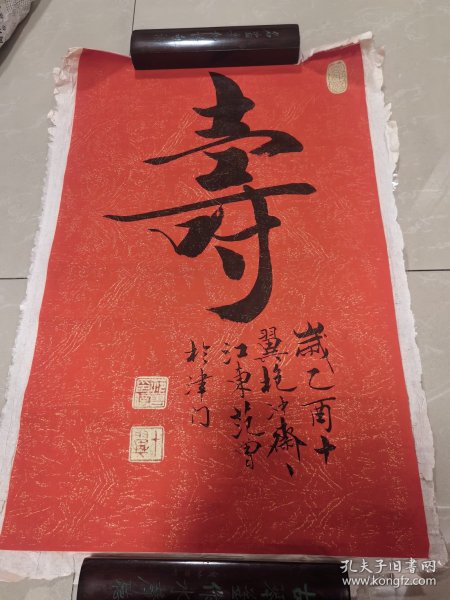 壽
歲乙酉十
翼抱冲齋、
江東范曾
於津门
孔夫子旧书网
www.kongfz.com